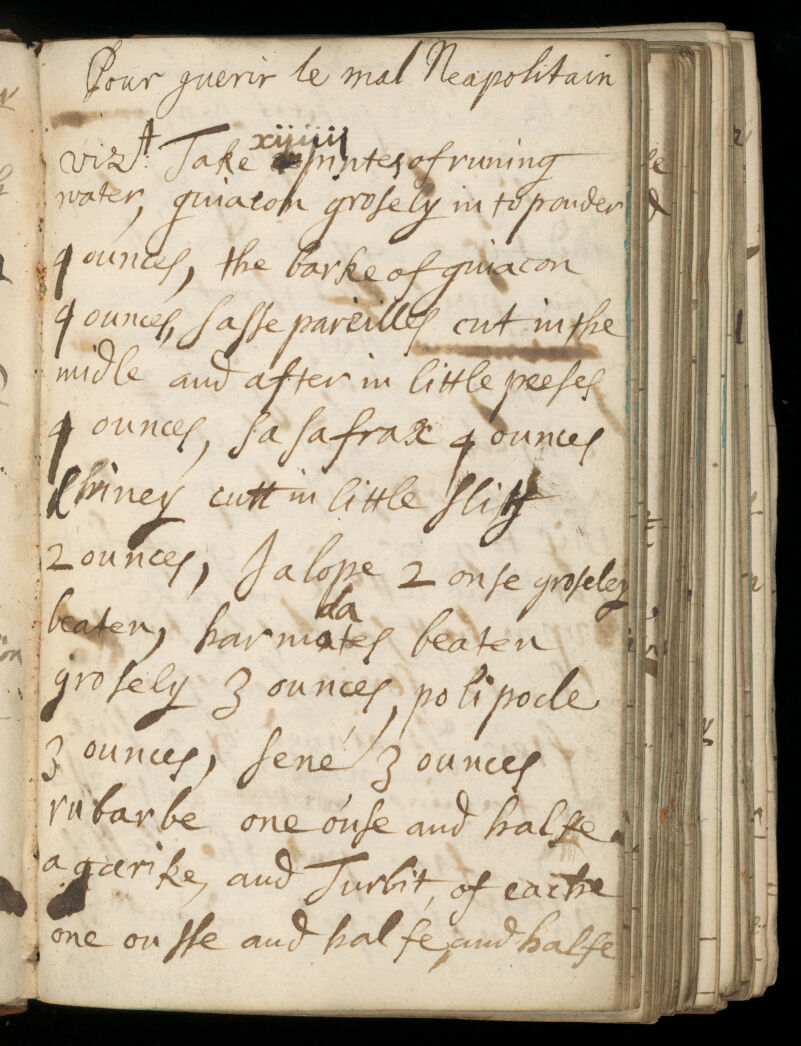 Pour guerir le mal Neapolitain
vizt Take xijiiij pintes of runing
water, guiacon grosely in to pouder
4 ounces, the barke of guiacon
4 ounces, sasse pareilles cut in the
midle and after in little peeses
4 ounces, sasafrax 4 ounces
Chiney cutt in little slits
2 ounces, Jalope 2 onse groseley
beaten, harmodates beaten
grosely 3 ounces, polipode
3 ounces, sené 3 ounces
rubarbe one ounse and halfe
agarike, and Turbit, of eache
one ousse and halfe, and halfe